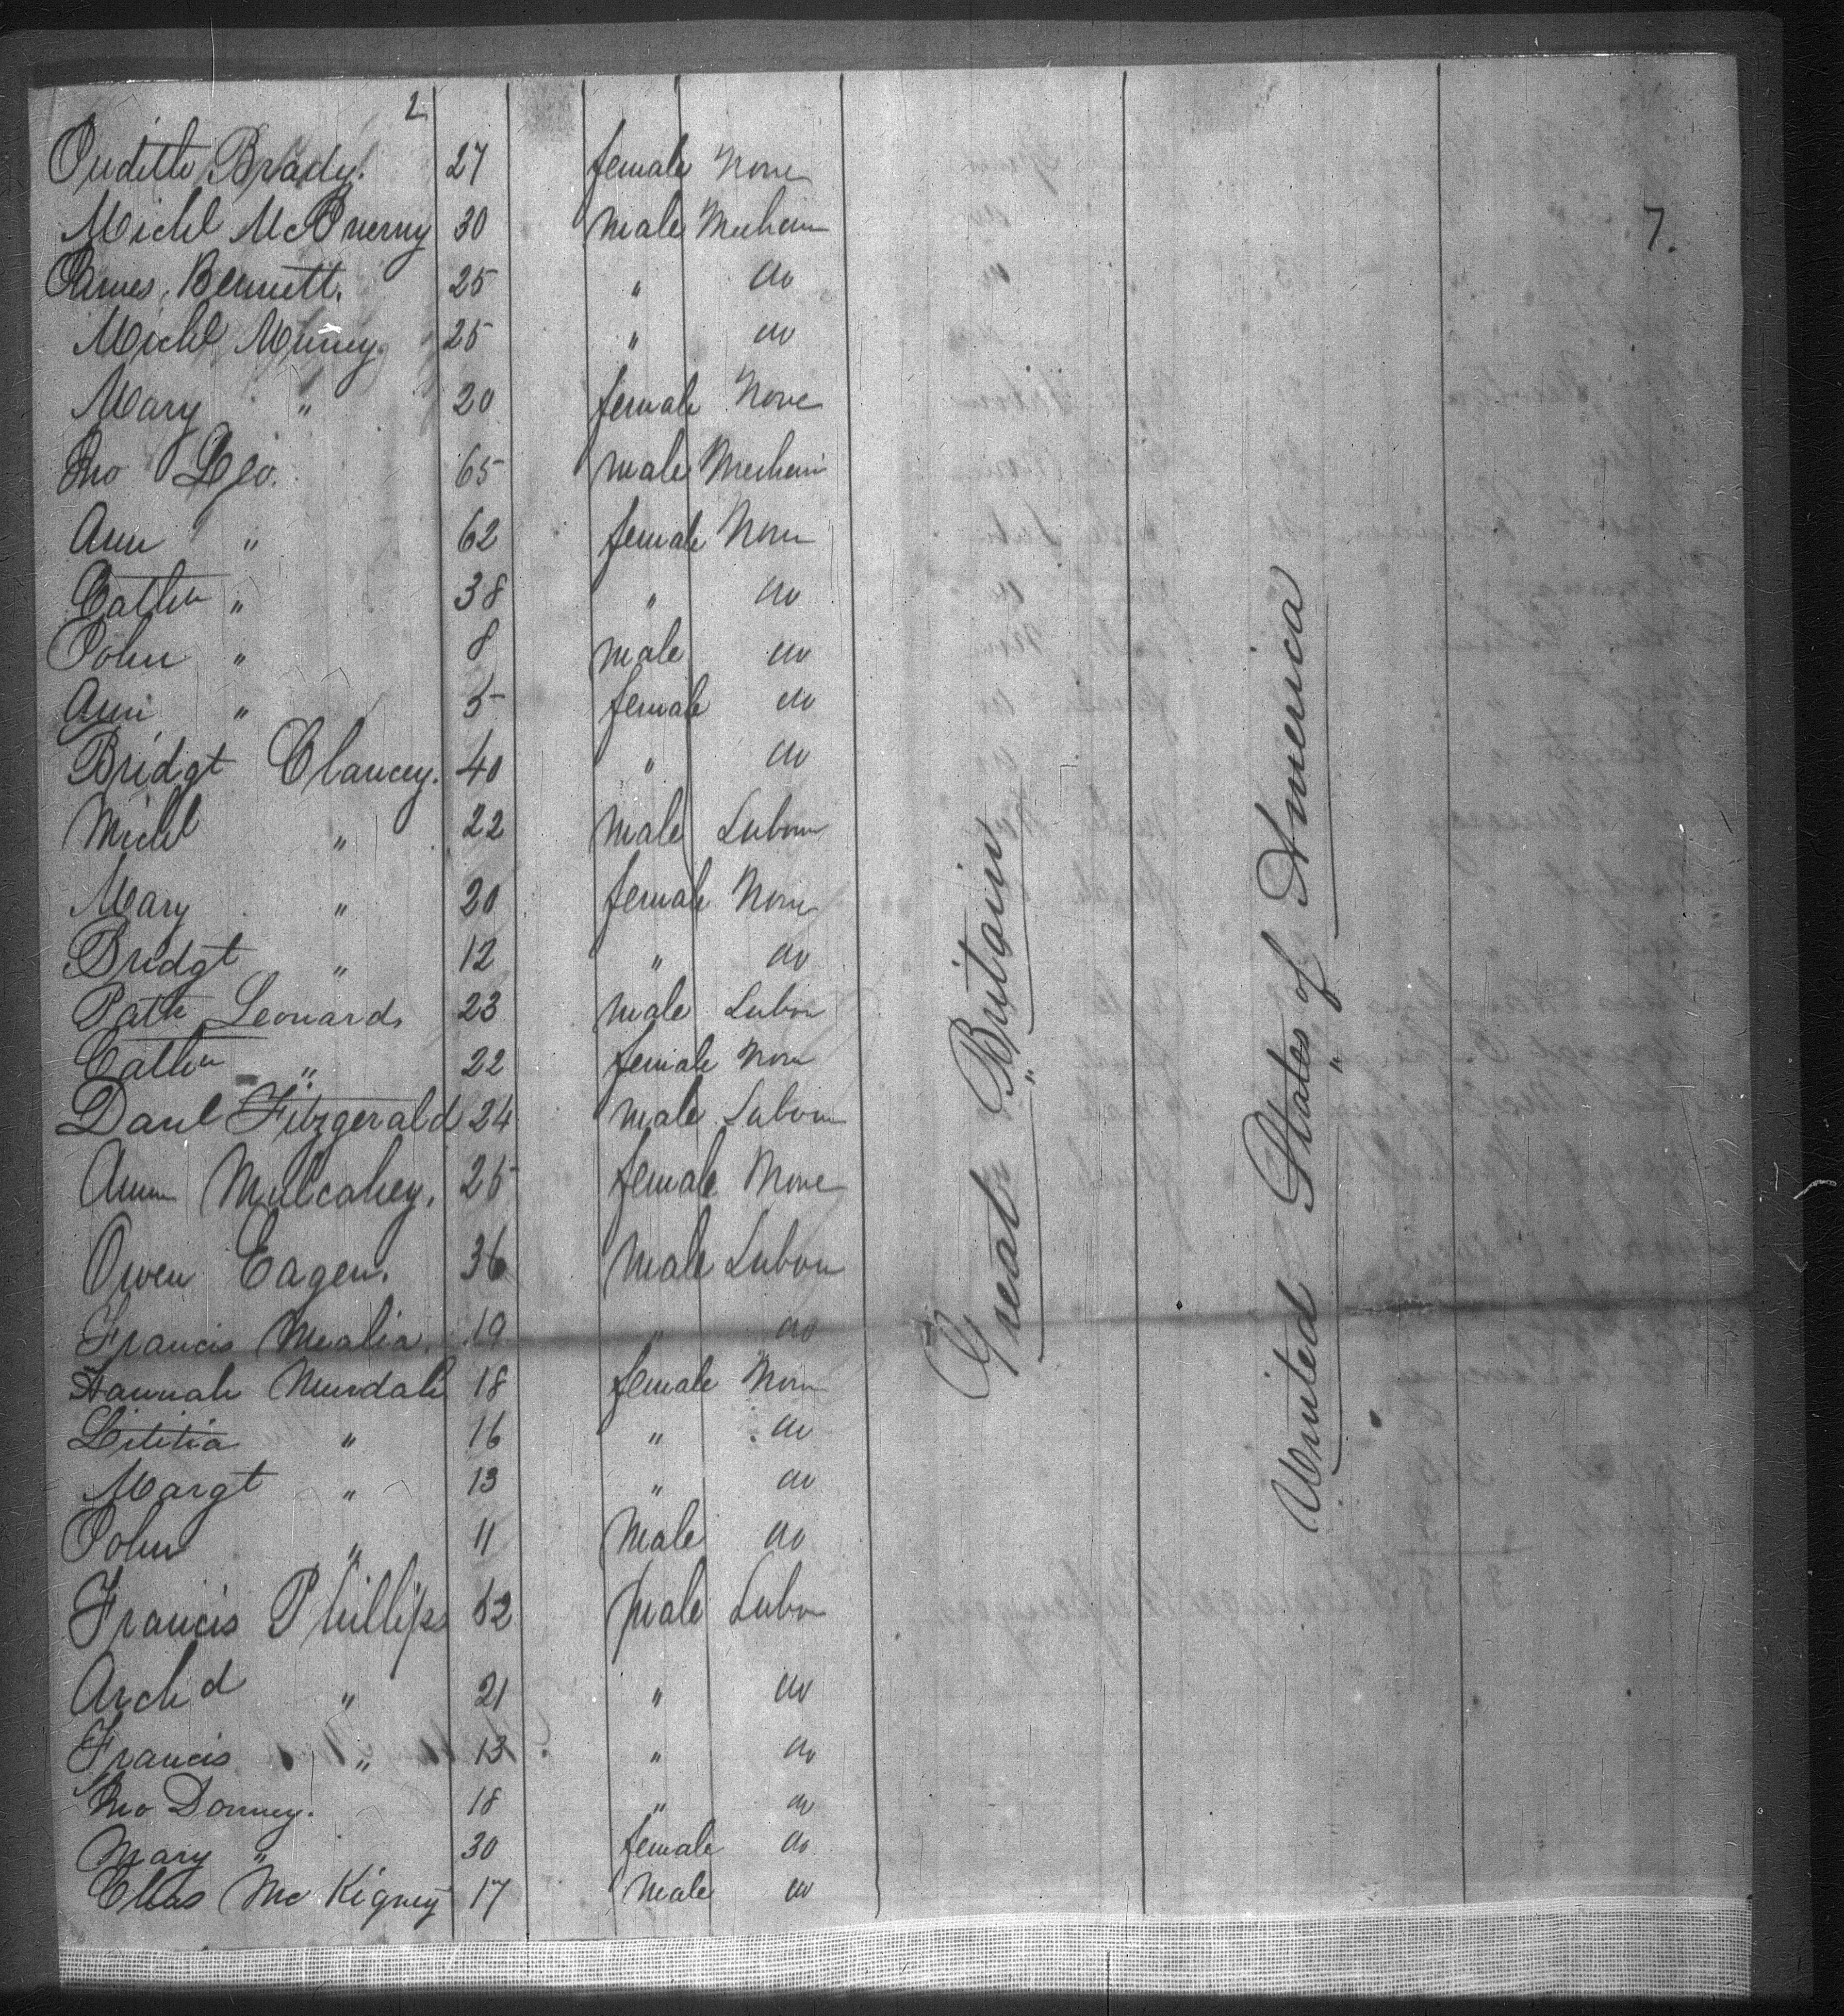 2
Judith Brady. 27 female None
Michl McInerny 30 male Mechani
7.
James Bennett. 25 " do
Michl 25 " do
Mary " 20 female None
Jno Leo. 65 male Mechani
Ann " 62 female None
Cathn " 38 " do
John " 8 male do
Ann " 5 female do
Bridgt Clancey. 40 " do
Michl " 22 male Labour
Mary " 20 female None
Bridgt " 12 " do
Patk Leonard 23 male Labour
Cathn " 22 female None
Danl Fitzgerald 24 male Labour
Ann Mulcahey. 25 female None
Owen Eagen. 36 male Labour
Francis Mealia. 19 " do
Hannah 18 female None
Letitia " 16 " do
Margt " 13 " do
John " 11 male do
Francis Phillips 52 male Labor
Archd " 21 " do
Francis " 13 " do
Jno 18 " do
Mary " 30 female do
Chas Mc Kigney 17 male do
Great Britain
United States of America